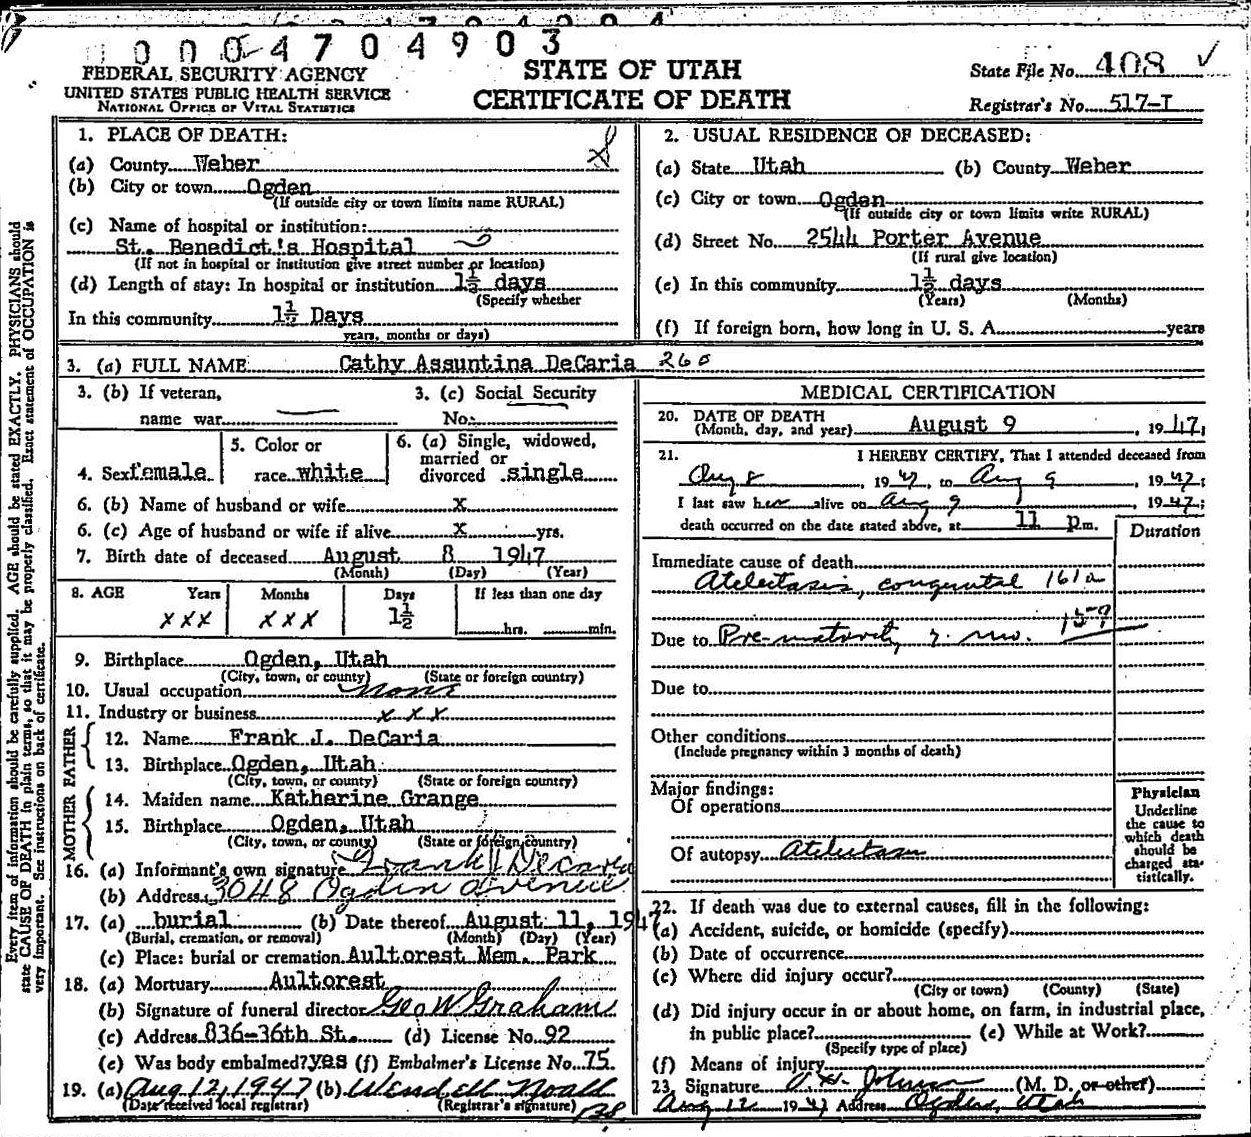 0004704903
FEDERAL SECURITY AGENCY
UNITED STATES PUBLIC HEALTH SERVICE
NATIONAL OFFICE OF VITAL STATISTICS
STATE OF UTAH
CERTIFICATE OF DEATH
State File No. 408
Registrar's No. 517-I
1. PLACE OF DEATH:
(a) County Weber
(b) City or town Ogden
(If outside city or town limits name RURAL)
(c) Name of hospital or institution:
St. Benedict's Hospital
(If not in hospital or institution give street number or location)
(d) Length of stay: In hospital or institution 1½ days
(Specify whether
In this community 1½ Days
years, months or days)
2. USUAL RESIDENCE OF DECEASED:
(a) State Utah (b) County Weber
(c) City or town Ogden
(If outside city or town limits write RURAL)
(d) Street No. 2544 Porter Avenue
(If rural give location)
(e) In this community 1½ days
(Years) (Months)
(f) If foreign born, how long in U. S. A. years
3. (a) FULL NAME Cathy Assuntina DeCaria 260
3. (b) If veteran,
name war
3. (c) Social Security
No.
4. Sex female
5. Color or
race white
6. (a) Single, widowed,
married or
divorced single
6. (b) Name of husband or wife x
6. (c) Age of husband or wife if alive x yrs.
7. Birth date of deceased August 8 1947
(Month) (Day) (Year)
8. AGE Years Months Days If less than one day
xxx xxx 1½ hrs. min.
9. Birthplace Ogden, Utah
(City, town, or county) (State or foreign country)
10. Usual occupation None
11. Industry or business x x x
FATHER
12. Name Frank J. DeCaria
13. Birthplace Ogden, Utah
(City, town, or county) (State or foreign country)
MOTHER
14. Maiden name Katherine Grange
15. Birthplace Ogden, Utah
(City, town, or county) (State or foreign country)
16. (a) Informant's own signature Frank J DeCaria
(b) Address 3048 Ogden avenue
17. (a) burial (b) Date thereof August 11, 1947
(Burial, cremation, or removal) (Month) (Day) (Year)
(c) Place: burial or cremation Aultorest Mem. Park
18. (a) Mortuary Aultorest
(b) Signature of funeral director Geo W Graham
(c) Address 836-36th St. (d) License No. 92
(e) Was body embalmed? yes (f) Embalmer's License No. 75.
19. (a) Aug 12, 1947 (b) Wendell Noall
(Date received local registrar) (Registrar's signature)
MEDICAL CERTIFICATION
20. DATE OF DEATH
(Month, day, and year) August 9, 1947;
21. I HEREBY CERTIFY, That I attended deceased from
Aug 8, 1947, to Aug 9, 1947;
I last saw her alive on Aug 9, 1947;
death occurred on the date stated above, at 11 p.m.
Duration
Immediate cause of death
Atelectasis, congenital 161a
Due to Pre-maturity 7 mo. 159
Due to
Other conditions
(Include pregnancy within 3 months of death)
Major findings:
Of operations
Of autopsy Atelectasis
Physician
Underline
the cause to
which death
should be
charged sta-
tistically.
22. If death was due to external causes, fill in the following:
(a) Accident, suicide, or homicide (specify)
(b) Date of occurrence
(c) Where did injury occur?
(City or town) (County) (State)
(d) Did injury occur in or about home, on farm, in industrial place,
in public place? (e) While at Work?
(Specify type of place)
(f) Means of injury
23. Signature (M. D. or other)
Aug 12 1947 Address Ogden, Utah
Every item of information should be carefully supplied. AGE should be stated EXACTLY. PHYSICIANS should
state CAUSE OF DEATH in plain terms, so that it may be properly classified. Exact statement of OCCUPATION is
very important. See instructions on back of certificate.